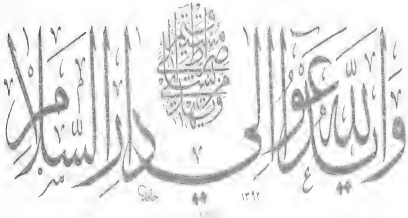 والله يدعوا الى دار السلام
ويهدى من يشاء الى صراط مستقيم
حامد ١٣٩٢